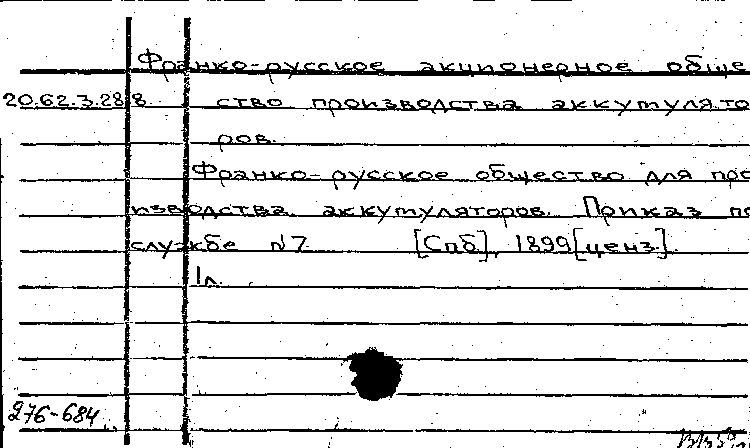 Франко-русское акционерное обще
20.62.3.288 ство производства аккумулято
ров.
Франко-русское общество для про
изводства аккумуляторов. Приказ по
службе №7 [Спб], 1899[ценз.].
1л.
276-684